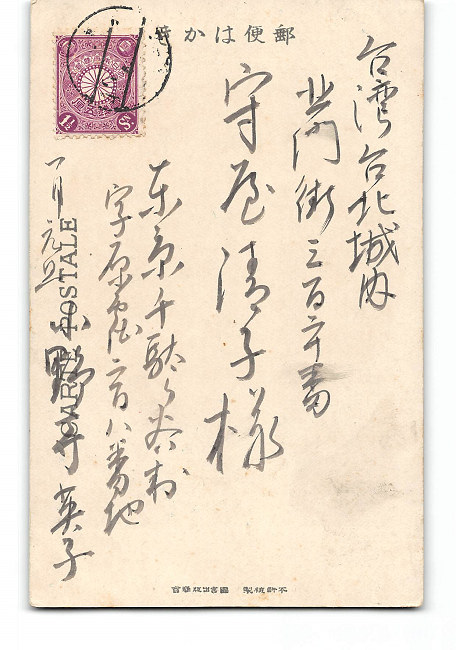 郵便はかき
台湾台北城内
北門街三百六十番
守屋清子様
東京千駄ヶ谷村
字原宿二百八番地
一月元旦
野 英子
CARTE POSTALE
1½ Sn